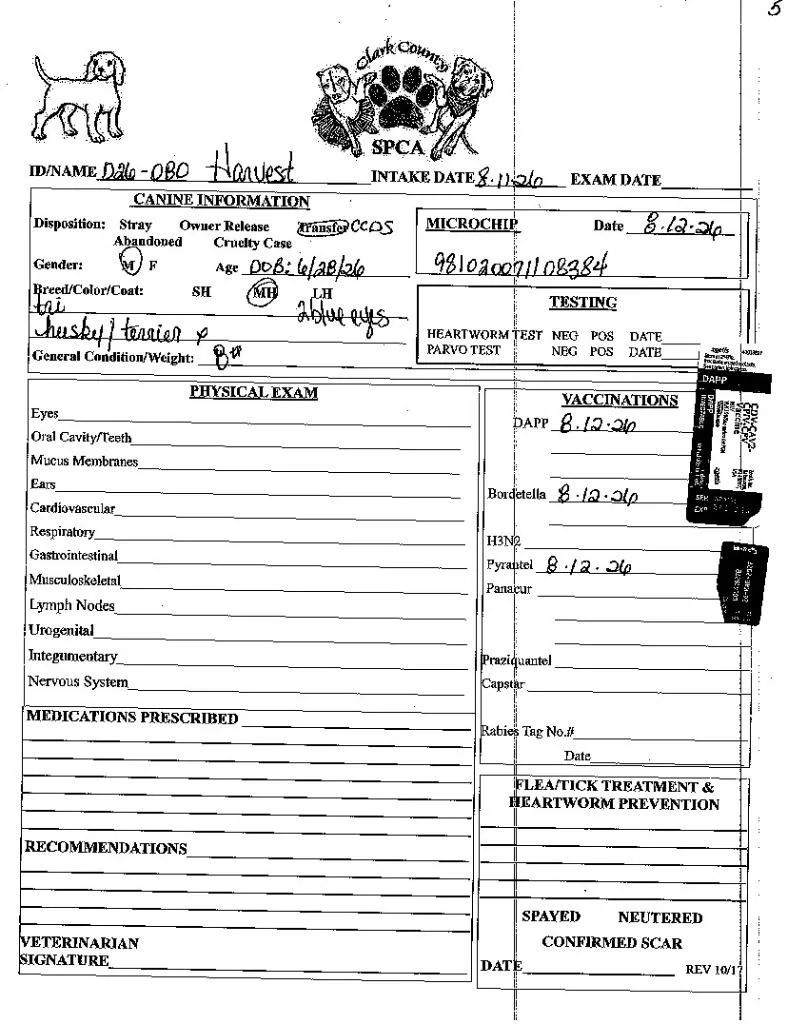 5
Clark County
SPCA
ID/NAME D26-080 Harvest INTAKE DATE 8.11.26 EXAM DATE
CANINE INFORMATION
Disposition: Stray Owner Release Transfer CCDS
Abandoned Cruelty Case
Gender: M F Age DOB: 6/28/26
Breed/Color/Coat: SH MH LH
tri 2 blue eyes
husky/terrier x
General Condition/Weight: 8#
MICROCHIP Date 8.12.26
981020071108384
TESTING
HEARTWORM TEST NEG POS DATE
PARVO TEST NEG POS DATE
PHYSICAL EXAM
Eyes
Oral Cavity/Teeth
Mucus Membranes
Ears
Cardiovascular
Respiratory
Gastrointestinal
Musculoskeletal
Lymph Nodes
Urogenital
Integumentary
Nervous System
MEDICATIONS PRESCRIBED
RECOMMENDATIONS
VETERINARIAN
SIGNATURE
VACCINATIONS
DAPP 8.12.26
Bordetella 8.12.26
H3N2
Pyrantel 8.12.26
Panacur
Praziquantel
Capstar
Rabies Tag No.#
Date
DAPP
FLEA/TICK TREATMENT &
HEARTWORM PREVENTION
SPAYED NEUTERED
CONFIRMED SCAR
DATE REV 10/17